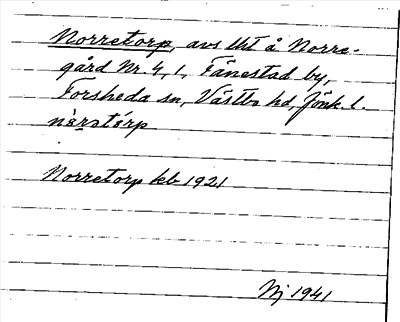 Norretorp, avs. lht å Norre-
gård Nr. 4, 1, Fånestad by,
Forsheda sn, Västbo hd, Jönk. l.
Norretorp kb 1921
Nj 1941